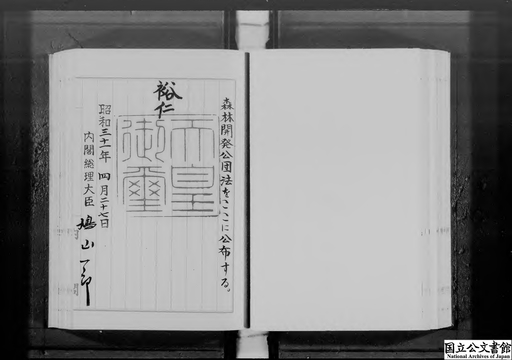 森林開発公団法をここに公布する。
裕仁
天皇
御璽
昭和三十一年四月二十七日
内閣総理大臣 鳩山一郎
国立公文書館
National Archives of Japan